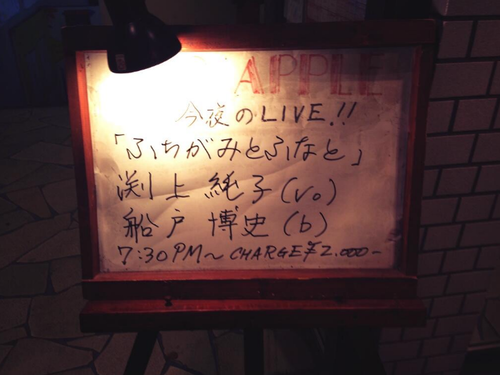 APPLE
今夜のLIVE!!
「ふちがみとふなと」
渕上 純子(vo)
船戸 博史(b)
7:30PM〜 CHARGE¥2.000-